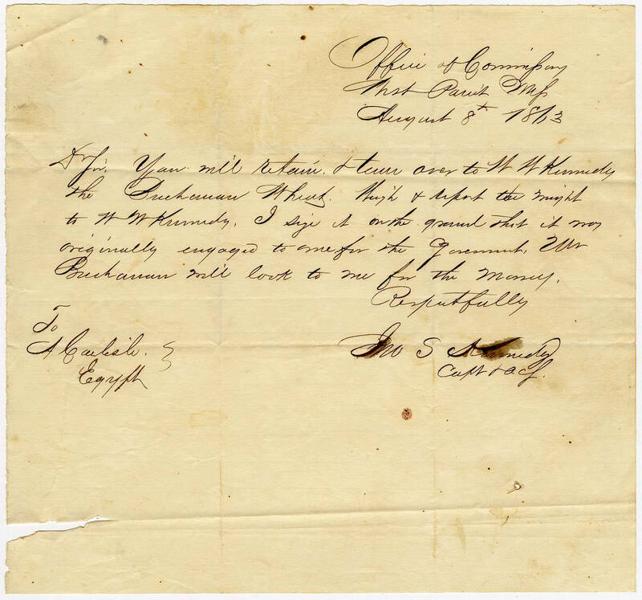 Office of Commissary
West Point Miss
August 8th 1863
Dr Sir. You will retain, & turn over to W W Kennedy
the Buchanan Wheat. Weigh & report the weight
to W W Kennedy. I size it on the ground that it was
originally engaged to me for the Government. Mr
Buchanan will look to me for the Money.
Respectfully
Jno S Kennedy
Capt & ACS.
To
A Carlisle.
Egypt